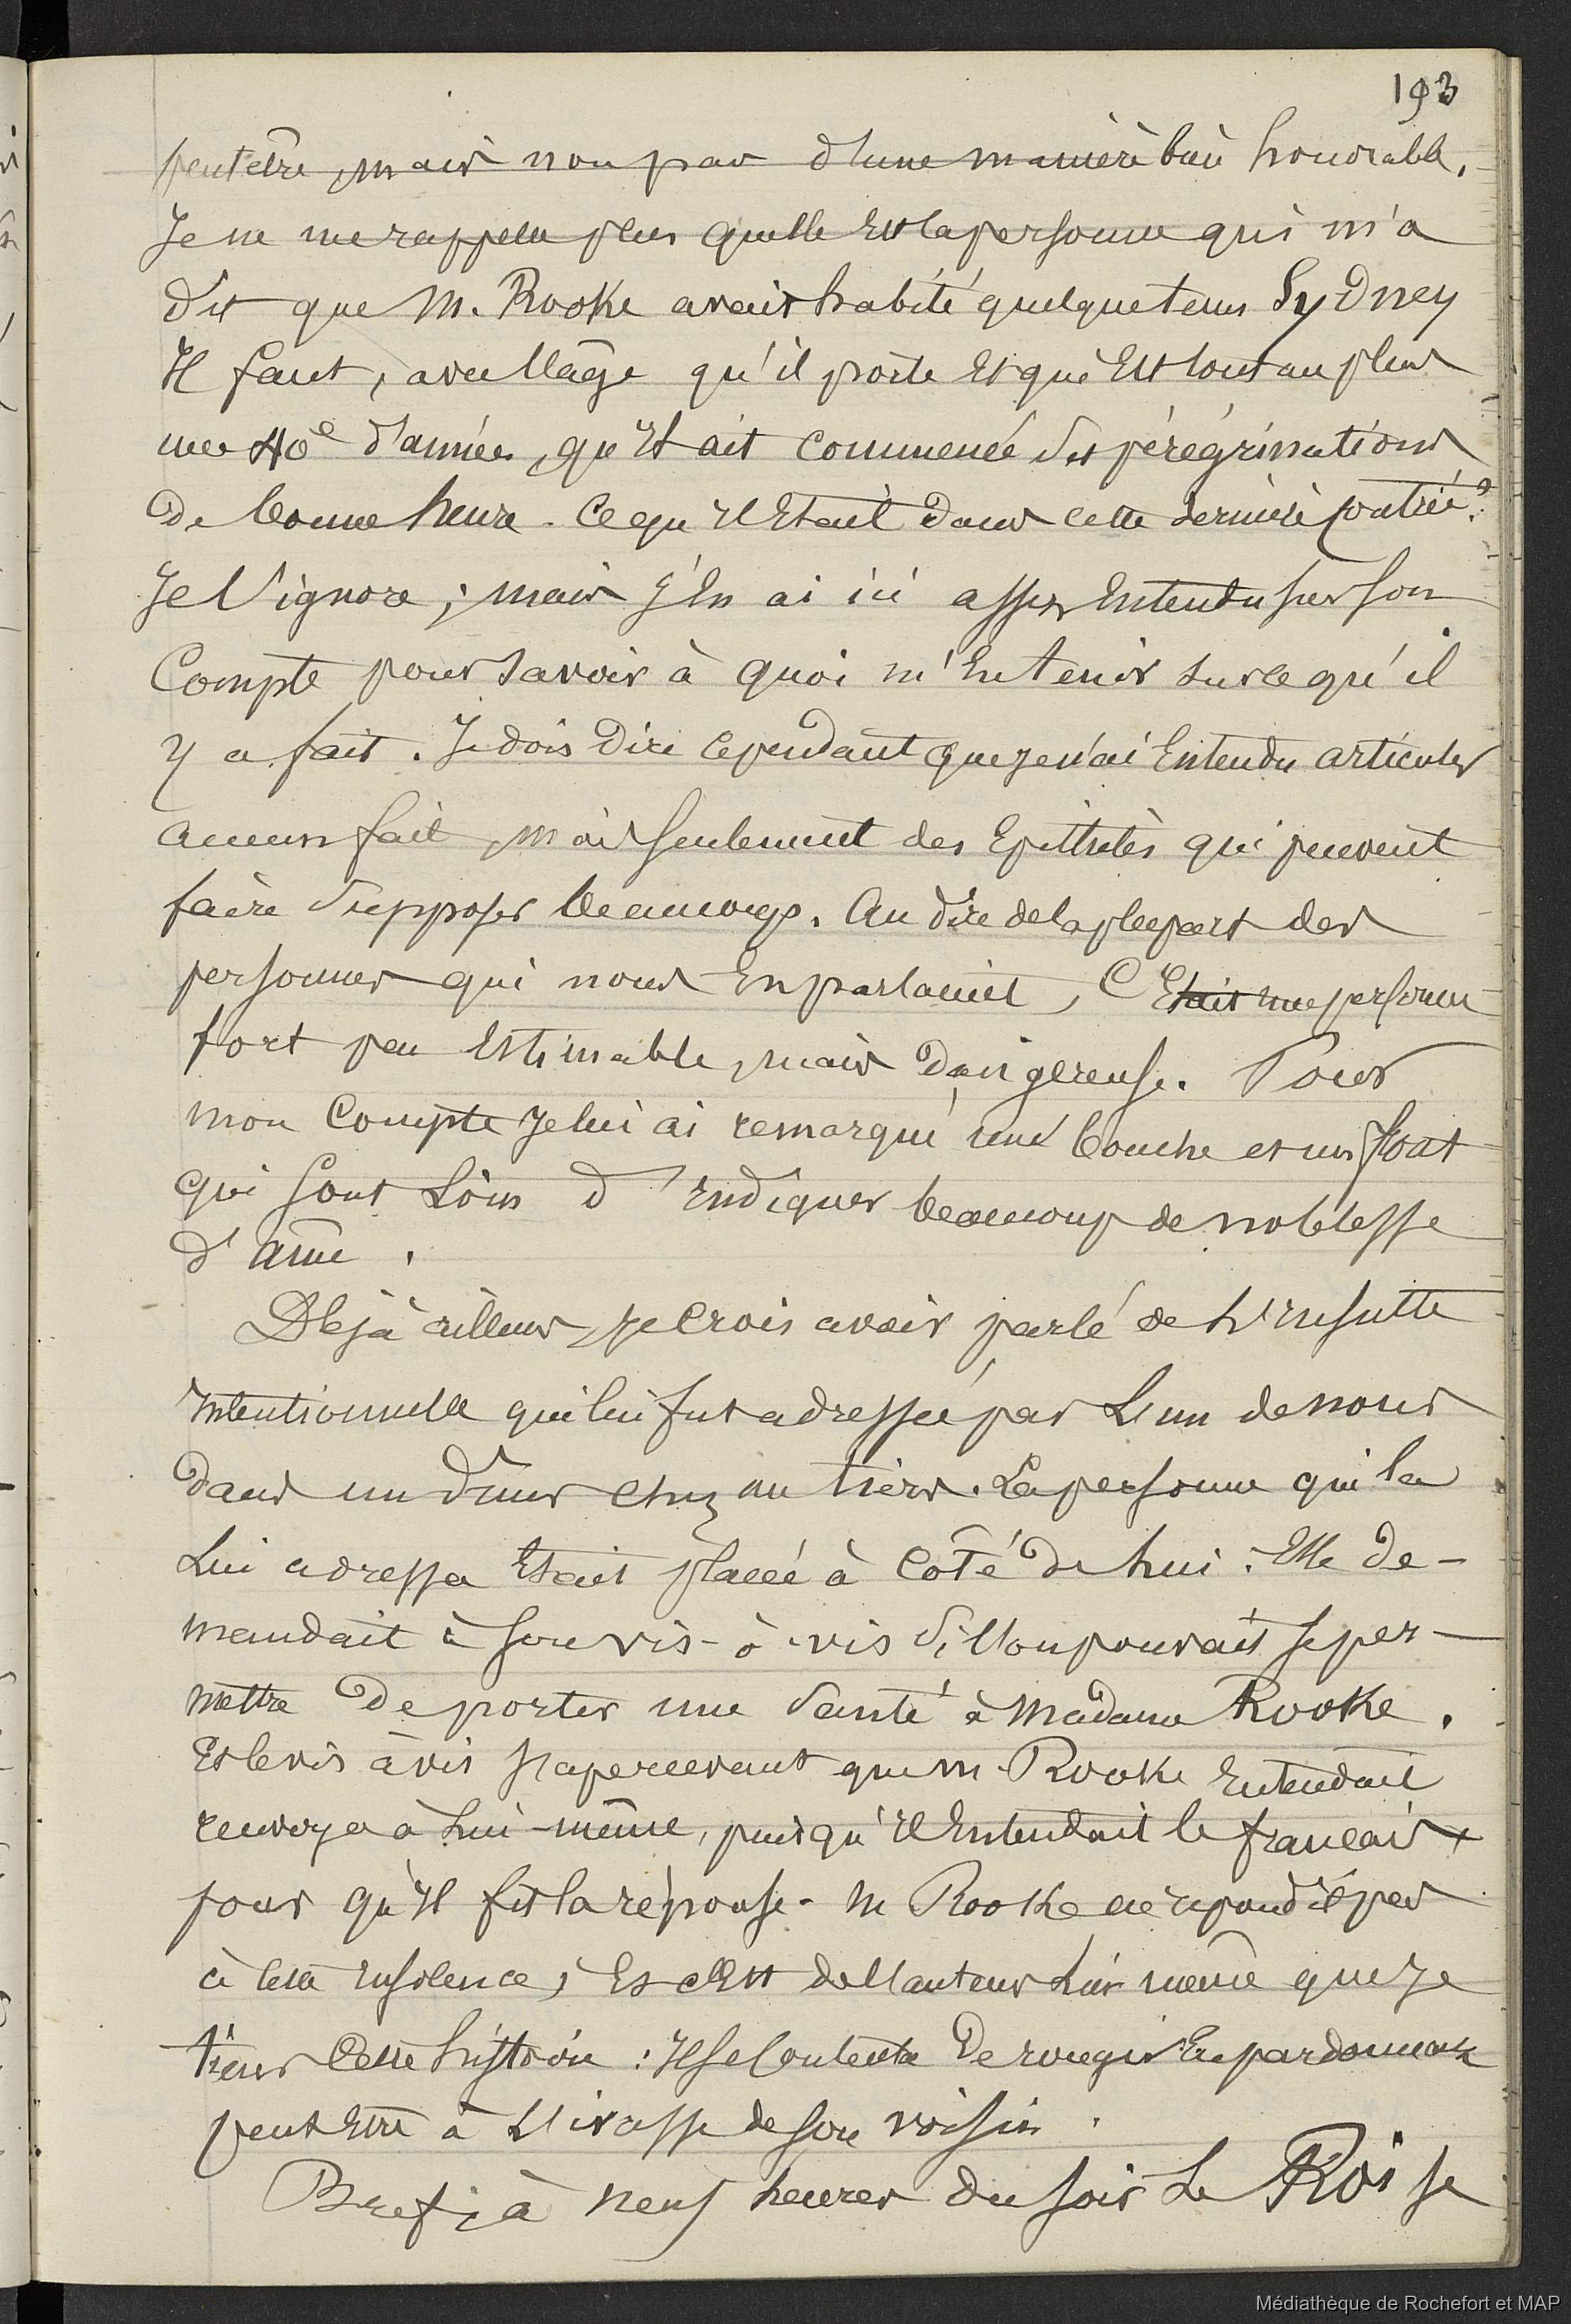 193
peut être, mais non pas d'une manière bien honorable.
Je ne me rappelle plus quelle est la personne qui m'a
dit que M. Rooke avait habité quelque tems Sydney
Il faut, avec l'âge qu'il porte et qui est tout au plus
une 40e d'années, qu'il ait commencé ses pérégrinations
de bonne heure. Ce qu'il était dans cette dernière contrée?
Je l'ignore; mais j'en ai ici assez entendu sur son
Compte pour savoir à quoi m'en tenir sur ce qu'il
y a fait. Je dois dire cependant que je n'ai entendu articuler
aucun fait, mais seulement des Epithètes qui peuvent
faire supposer beaucoup. Au dire de la plupart des
personnes qui nous en parlaient, C'Etait une personne
fort peu estimable, mais dangereuse. Pour
mon Compte je lui ai remarqué une bouche et un front
qui sont loin d'indiquer beaucoup de noblesse
d'âme.
Déjà ailleurs, je crois avoir parlé de l'insulte
intentionnelle qui lui fut adressée par l'un de nous
dans un dîner chez un tiers. La personne qui la
lui adressa était placée à Côté de lui: Elle de-
mandait à son vis-à-vis si l'on pouvait se per-
mettre de porter une santé à madame Rooke.
Et le vis à vis s'apercevant que M. Rooke entendait
renvoya à lui-même, puisqu'il entendait le français
pour qu'il fit la réponse. M Rooke ne répondit pas
à cette insolence; Et c'est de l'auteur lui même que je
tiens cette histoire: Il se contenta de rougir En pardonnant
peut être à l'ivresse de son voisin.
Bref, à neuf heures du soir Le Roi se
Médiathèque de Rochefort et MAP